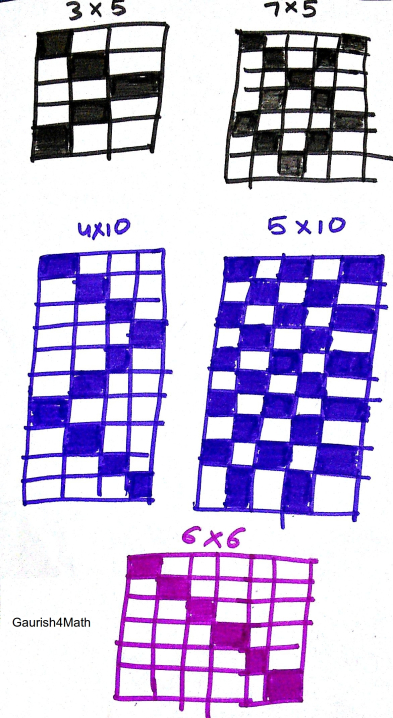 3×5
7×5
4×10
5×10
6×6
Gaurish4Math